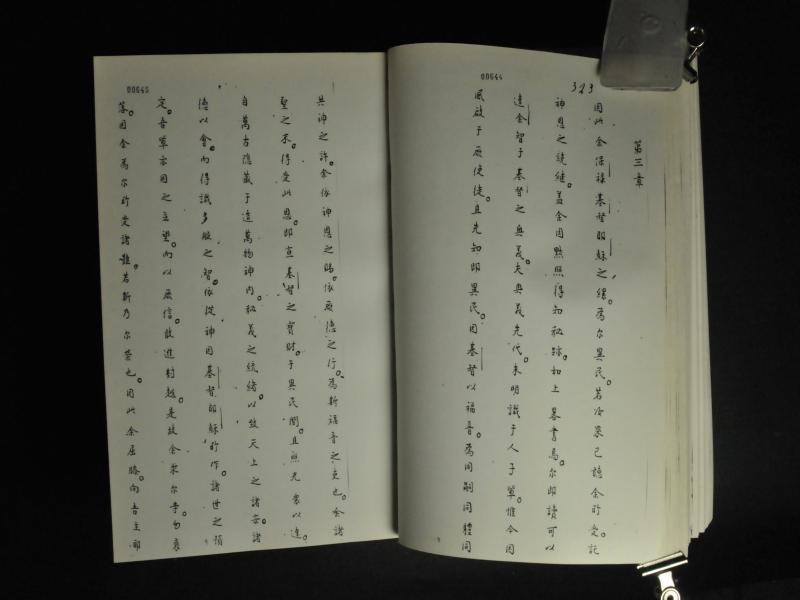 00644
323
第三章
因此余保祿基督耶穌之縲。為尔異民。若尔果已聽余所受託
神恩之繞縺。盖余因黙照得知秘跡。如上畧書焉。尔即讀可以
達余智于基督之奧義。夫奧義先代。未明識于人子輩。惟今因
風啟于厥使徒。且先知即異民。因基督以福音。為同嗣同體同
00645
共神之許。余依神恩之賜。依厥德之行。為斯福音之吏也。余諸
聖之末。得受此恩。即宣基督之寶財。于異民間。且照光衆以達
自萬古隱藏于造萬物神內。秘義之統緒。以致天上之諸宗諸
德以會。而得識多般之智。依從神因基督耶穌所作。諸世之預
定。吾輩亦因之立望。而以厥信。敢進對越。是故余求尔等。勿衰
落。因余為尔所受諸難。若斯乃尔榮也。因此余屈膝。向吾主耶